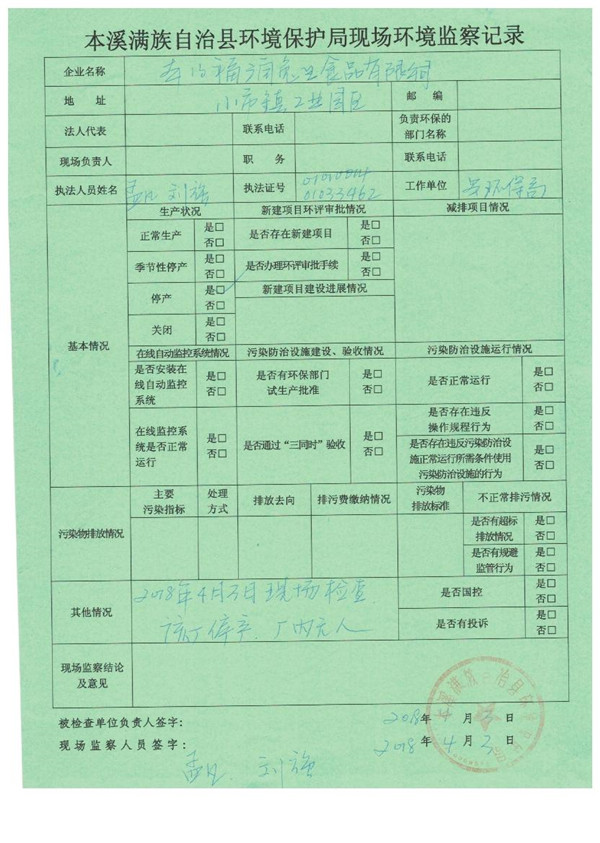 本溪满族自治县环境保护局现场环境监察记录
企业名称 食品有限公司
地 址 小市镇工业园区 邮 编
法人代表 联系电话 负责环保的部门名称
现场负责人 职 务 联系电话
执法人员姓名 孟凡 刘强 执法证号 01033462 工作单位 县环保局
基本情况
生产状况 新建项目环评审批情况 减排项目情况
正常生产 是□ 否□ 是否存在新建项目 是□ 否□
季节性停产 是□ 否□ 是否办理环评审批手续 是□ 否□
停产 是□ 否□ 新建项目建设进展情况
关闭 是□ 否□
在线自动监控系统情况 污染防治设施建设、验收情况 污染防治设施运行情况
是否安装在线自动监控系统 是□ 否□ 是否有环保部门试生产批准 是□ 否□ 是否正常运行 是□ 否□
在线监控系统是否正常运行 是□ 否□ 是否通过“三同时”验收 是□ 否□ 是否存在违反操作规程行为 是□ 否□
是否存在违反污染防治设施正常运行所需条件使用污染防治设施的行为 是□ 否□
污染物排放情况
主要污染指标 处理方式 排放去向 排污费缴纳情况 污染物排放标准 不正常排污情况
是否有超标排放情况 是□ 否□
是否有规避监管行为 是□ 否□
其他情况
2018年4月3日现场检查
该厂停产,厂内无人
是否国控 是□ 否□
是否有投诉 是□ 否□
现场监察结论及意见
被检查单位负责人签字: 2018年 月3日
现场监察人员签字: 2018年4月3日
孟凡 刘强